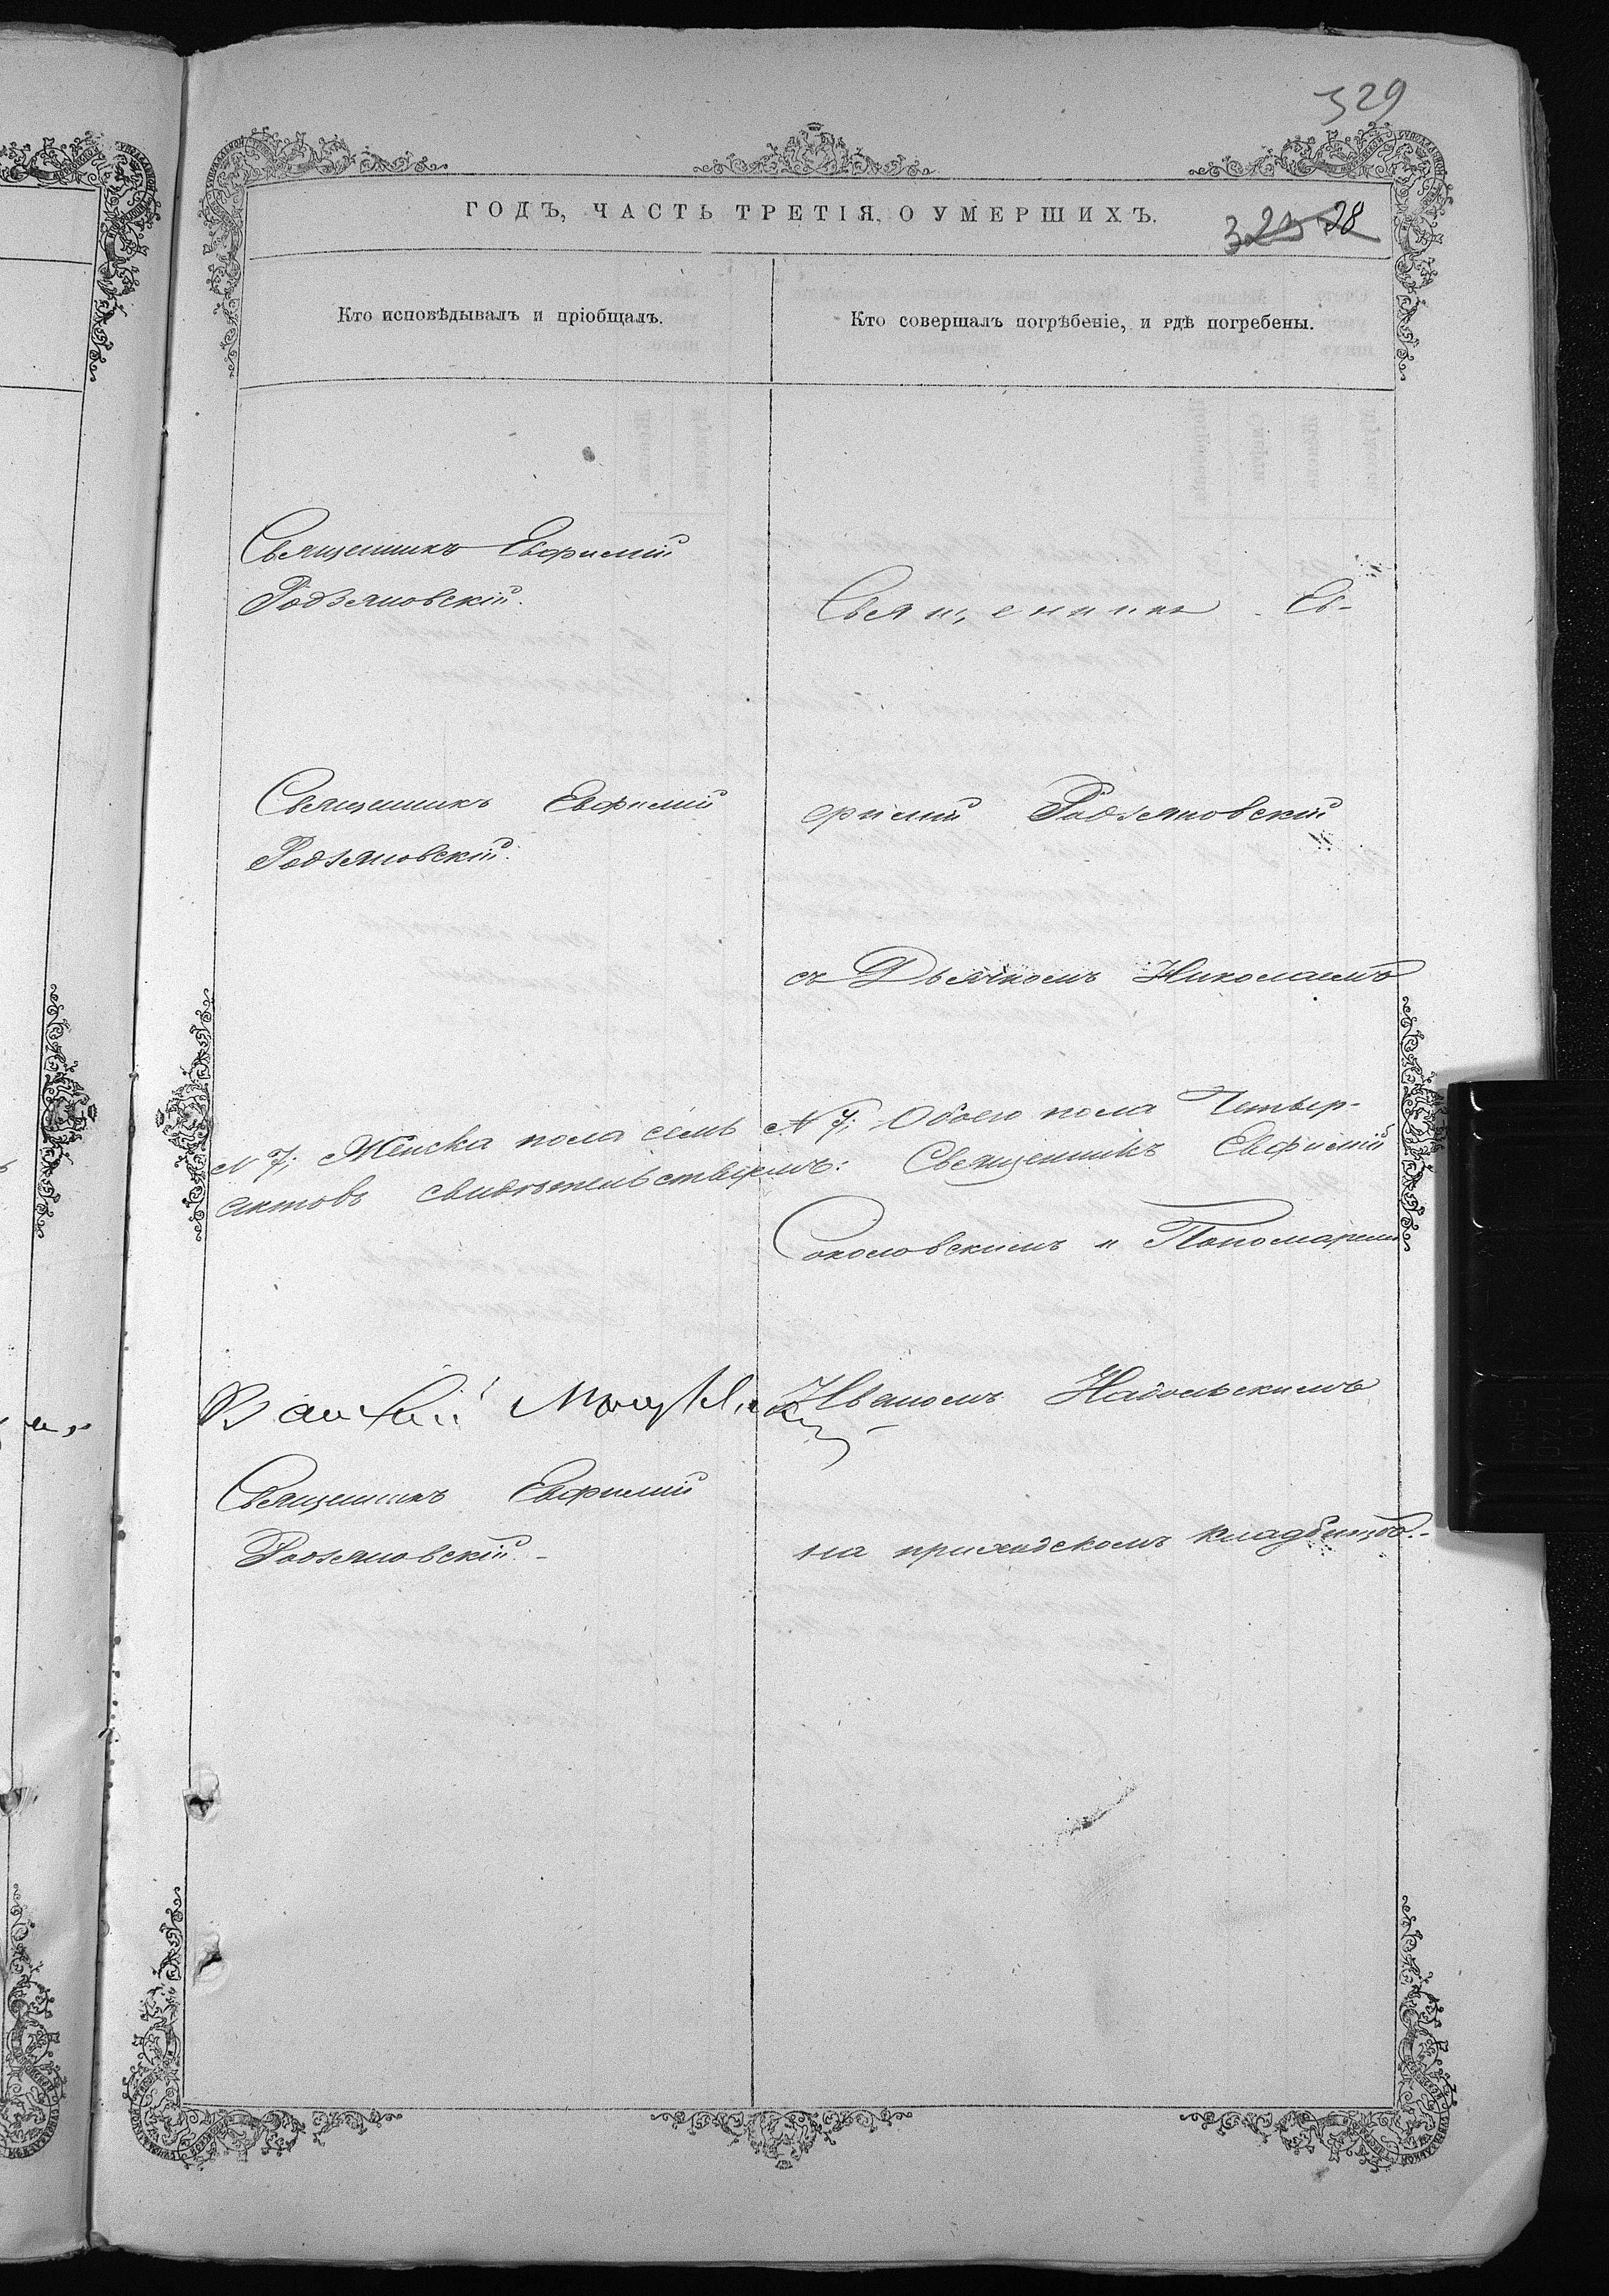 329
ГОДЪ, ЧАСТЬ ТРЕТІЯ, О УМЕРШИХЪ.
28
Кто исповѣдывалъ и пріобщалъ.
Кто совершалъ погрѣбеніе, и гдѣ погребены.
Священникъ Евфимій
Родзяновскій.
Священникъ Ев-
Священникъ Евфимій
Родзяновскій.
фимій Родзяновскій
съ Дьячкомъ Николаемъ
N 7; Женска пола семь
N 7; Обоего пола Четыр-
актовъ свидѣтельствуемъ: Священникъ Евфимій
Соколовскимъ и Пономаремъ
Иваномъ Надольскимъ
Священникъ Евфимій
Родзяновскій.-
на приходскомъ кладбищѣ.-